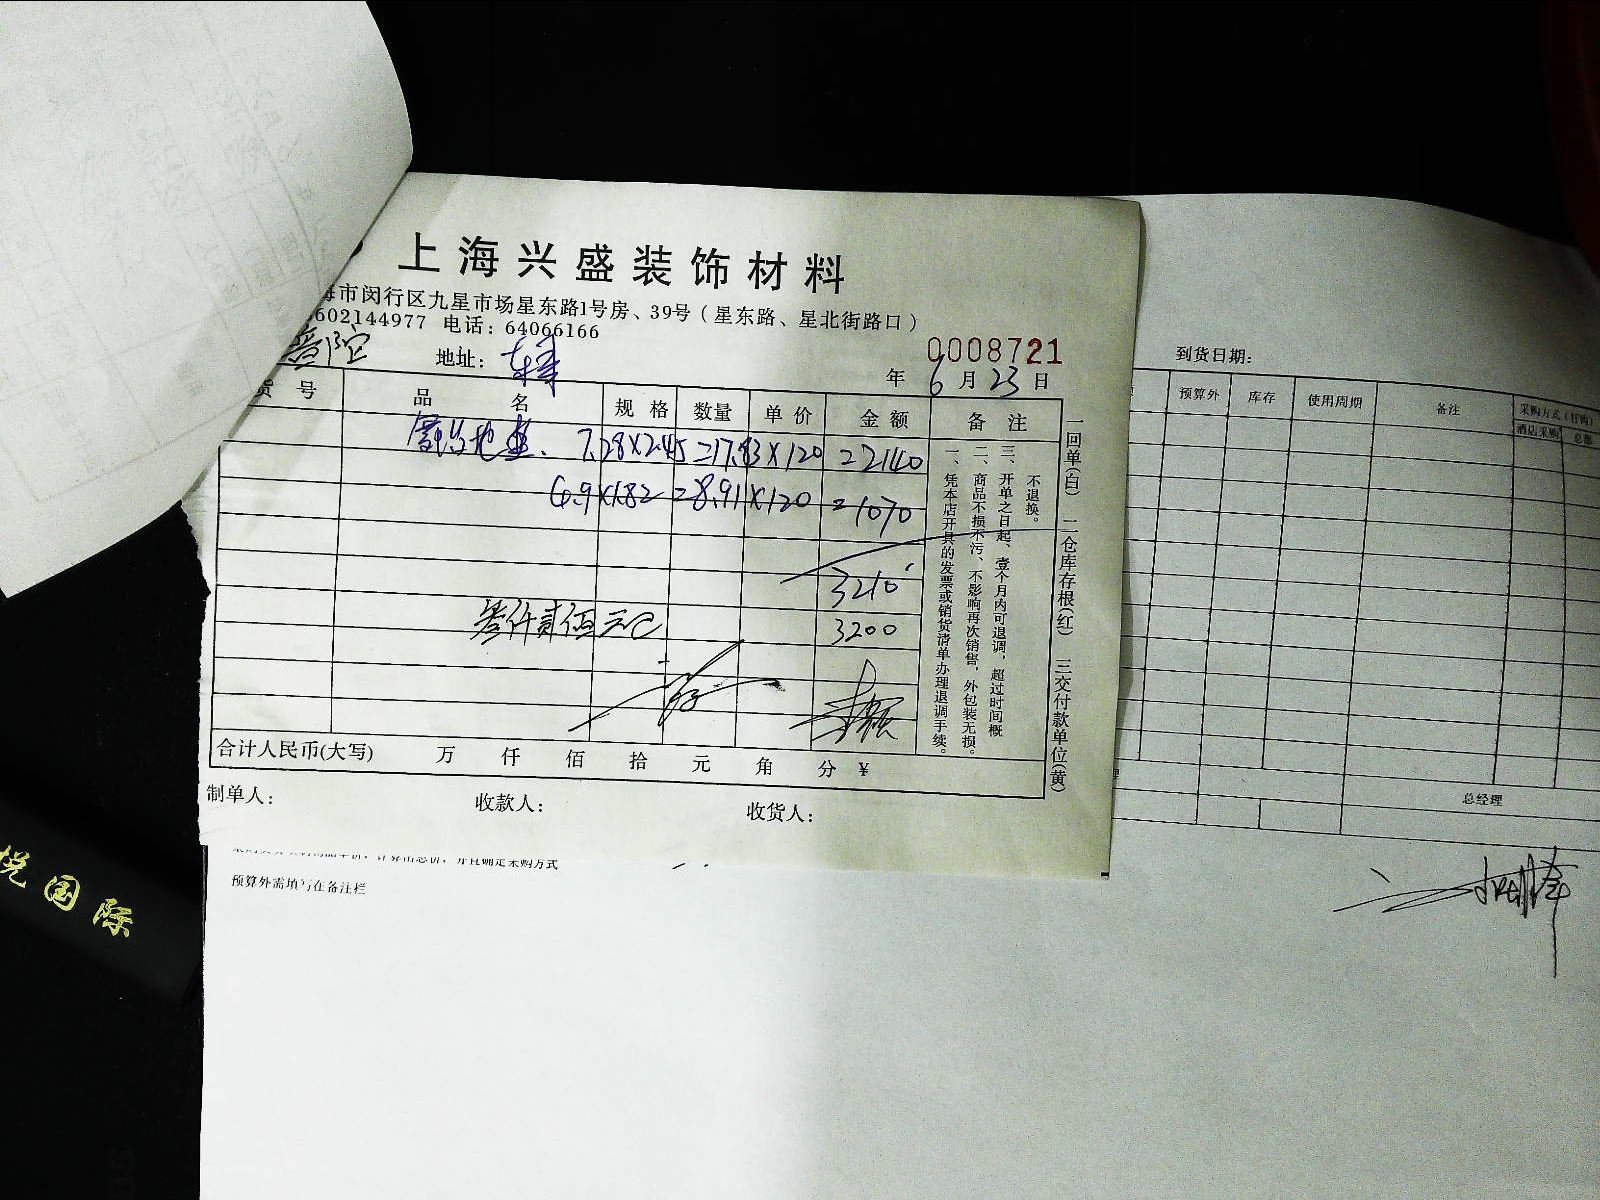 上海兴盛装饰材料
海市闵行区九星市场星东路1号房、39号（星东路、星北街路口）
602144977 电话：64066166
地址：
0008721
年 6 月 23 日
货号 品名 规格 数量 单价 金额 备注
地 7.28×2.45=17.83×120=2140
6.9×1.82=8.91×120=1070
3210
叁仟贰佰元 3200
一、凭本店开具的发票或销货清单办理退调手续。
二、商品不损不污、不影响再次销售，外包装无损。
三、开单之日起、壹个月内可退调，超过时间概
不退换。
一回单(白) 二仓库存根(红) 三交付款单位(黄)
合计人民币(大写) 万 仟 佰 拾 元 角 分 ¥
制单人： 收款人： 收货人：
到货日期：
预算外 库存 使用周期 备注 采购方式（打钩）
酒店采购 总部
总经理
预算外需填写在备注栏
悦国际